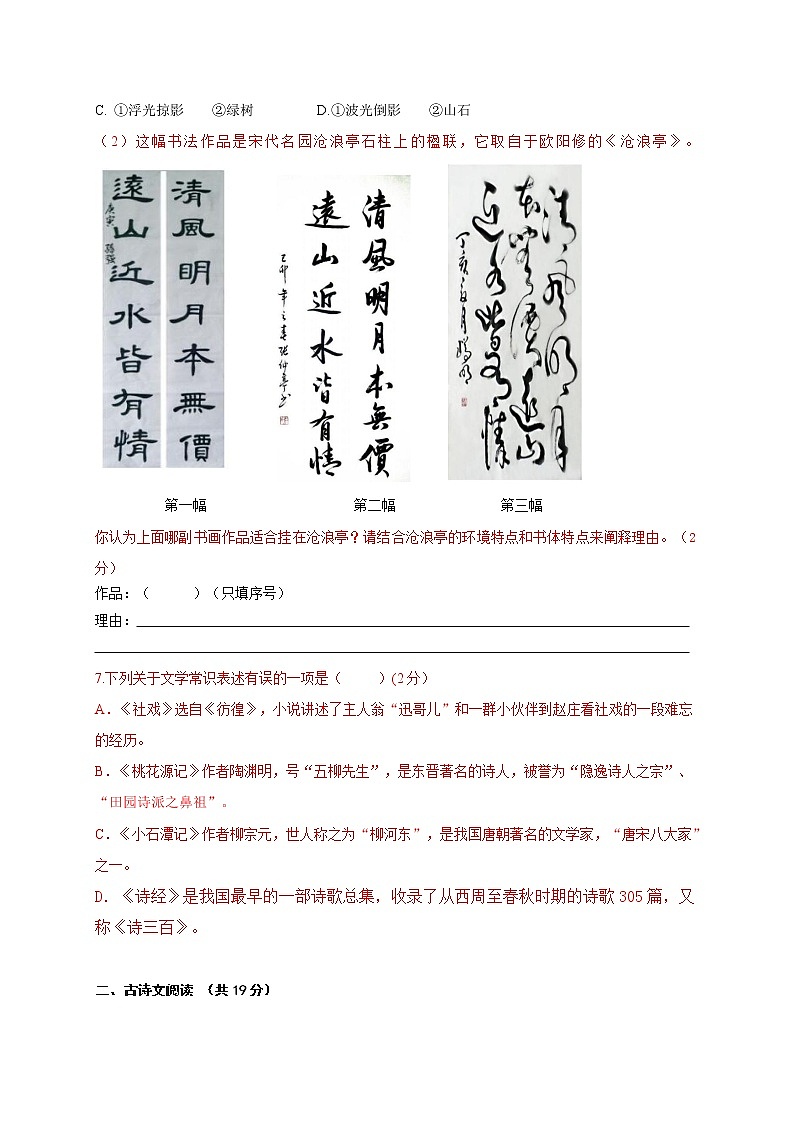 C. ①浮光掠影 ②绿树 D.①波光倒影 ②山石
（2）这幅书法作品是宋代名园沧浪亭石柱上的楹联，它取自于欧阳修的《沧浪亭》。
清風明月本無價
遠山近水皆有情
庚寅
清風明月本無價
遠山近水皆有情
己卯年之春
清风明月
本無價遠山
近水皆有情
丁亥
第一幅 第二幅 第三幅
你认为上面哪副书画作品适合挂在沧浪亭？请结合沧浪亭的环境特点和书体特点来阐释理由。（2
分）
作品：（ ）（只填序号）
理由：
7.下列关于文学常识表述有误的一项是（ ）(2分）
A.《社戏》选自《彷徨》，小说讲述了主人翁“迅哥儿”和一群小伙伴到赵庄看社戏的一段难忘
的经历。
B.《桃花源记》作者陶渊明，号“五柳先生”，是东晋著名的诗人，被誉为“隐逸诗人之宗”、
“田园诗派之鼻祖”。
C.《小石潭记》作者柳宗元，世人称之为“柳河东”，是我国唐朝著名的文学家，“唐宋八大家”
之一。
D. 《诗经》是我国最早的一部诗歌总集，收录了从西周至春秋时期的诗歌 305 篇，又
称《诗三百》。
二、古诗文阅读 （共 19 分）